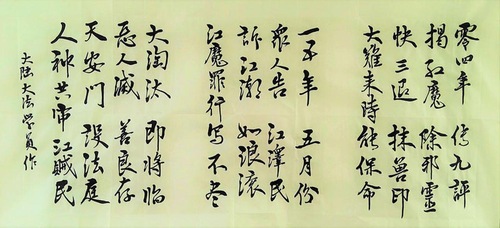 零四年 傳九評
揭紅魔 除邪靈
快三退 抹兽印
大難来時能保命
一五年 五月份
眾人告 江澤民
訴江潮 如浪滚
江魔罪行写不尽
大淘汰 即將临
恶人滅 善良存
天安門 設法庭
人神共审江贼民
大陆大法学員作